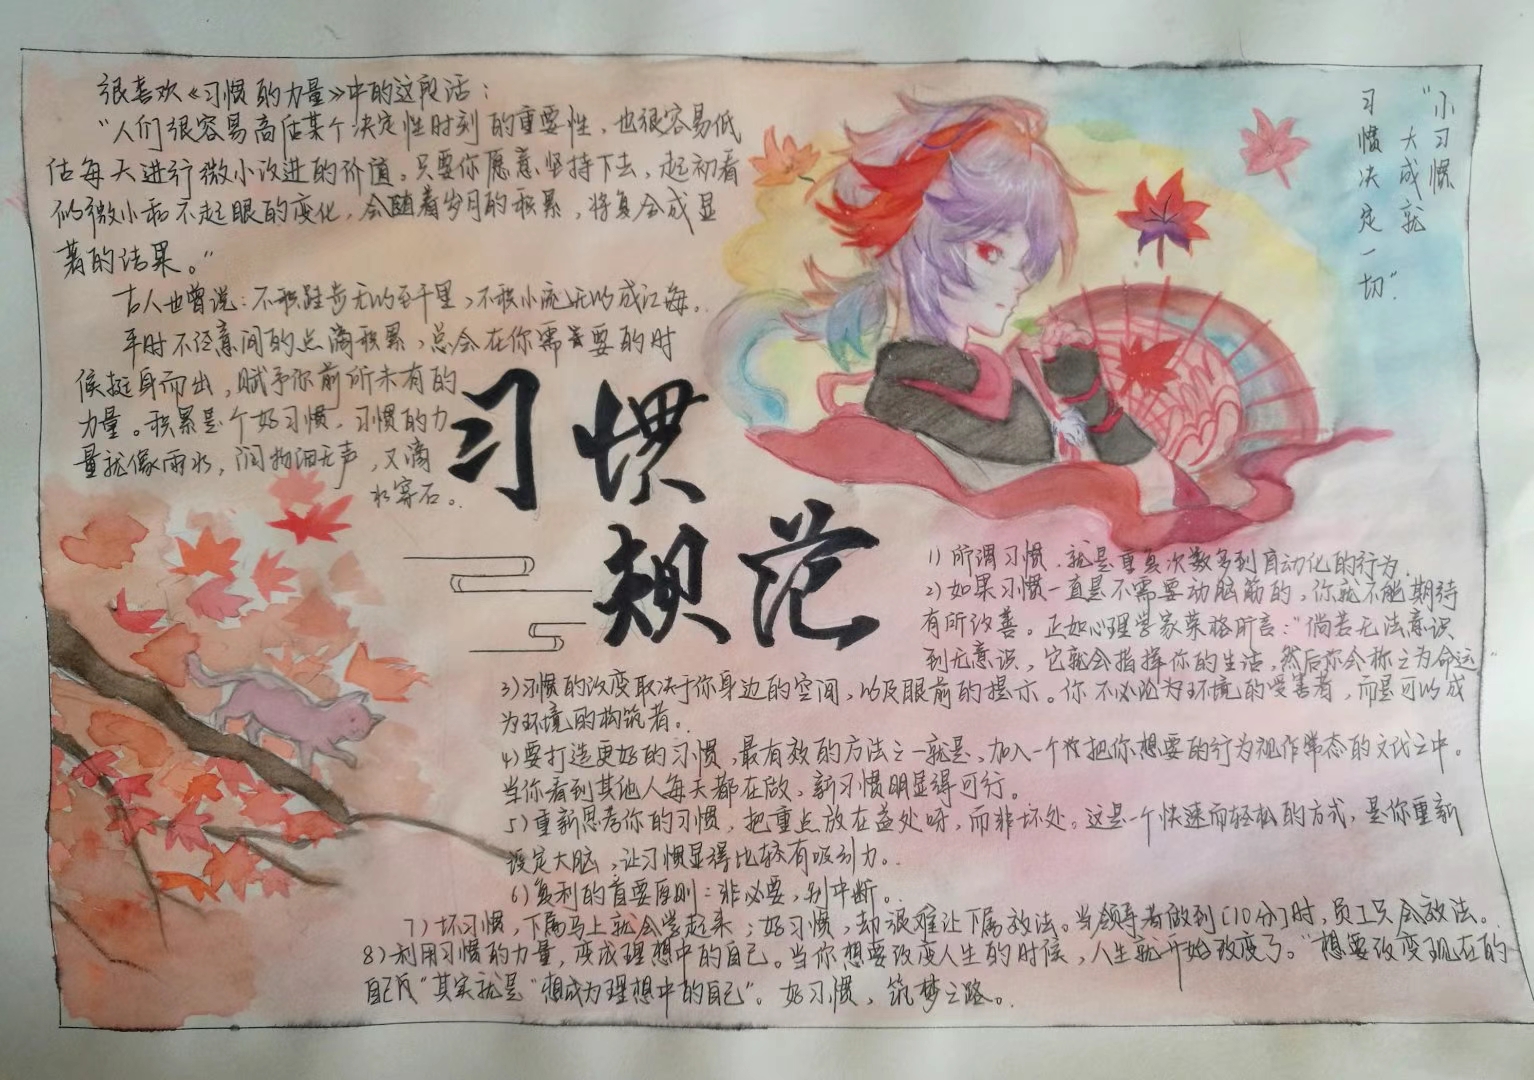 很喜欢《习惯的力量》中的这段话：
“人们很容易高估某个决定性时刻的重要性，也很容易低
估每天进行微小改进的价值。只要你愿意坚持下去，起初看
似微小和不起眼的变化，会随着岁月的积累，将复合成显
著的结果。”
古人也曾说：不积跬步无以至千里，不积小流无以成江海。
平时不经意间的点滴积累，总会在你需要的时
候挺身而出，赋予你前所未有的
力量。积累是个好习惯，习惯的力
量就像雨水，润物细无声，又滴
水穿石。
“小习惯
大成就
习惯决定一切”
习惯
规范
1）所谓习惯，就是重复次数多到自动化的行为。
2）如果习惯一直是不需要动脑筋的，你就不能期待
有所改善。正如心理学家荣格所言：“倘若无法意识
到无意识，它就会指挥你的生活，然后你会称之为命运”
3）习惯的改变取决于你身边的空间，以及眼前的提示。你不必沦为环境的受害者，而是可以成
为环境的构筑者。
4）要打造更好的习惯，最有效的方法之一就是，加入一个把你想要的行为视作常态的文化之中。
当你看到其他人每天都在做，新习惯明显得可行。
5）重新思考你的习惯，把重点放在益处呀，而非坏处。这是一个快速而轻松的方式，是你重新
设定大脑，让习惯显得比较有吸引力。
6）复利的首要原则：非必要，别中断。
7）坏习惯，下属马上就会学起来；好习惯，却很难让下属效法。当领导者做到[10分]时，员工只会效法。
8）利用习惯的力量，变成理想中的自己。当你想要改变人生的时候，人生就开始改变了。“想要改变现在的
自己”其实就是“想成为理想中的自己”。好习惯，筑梦之路。